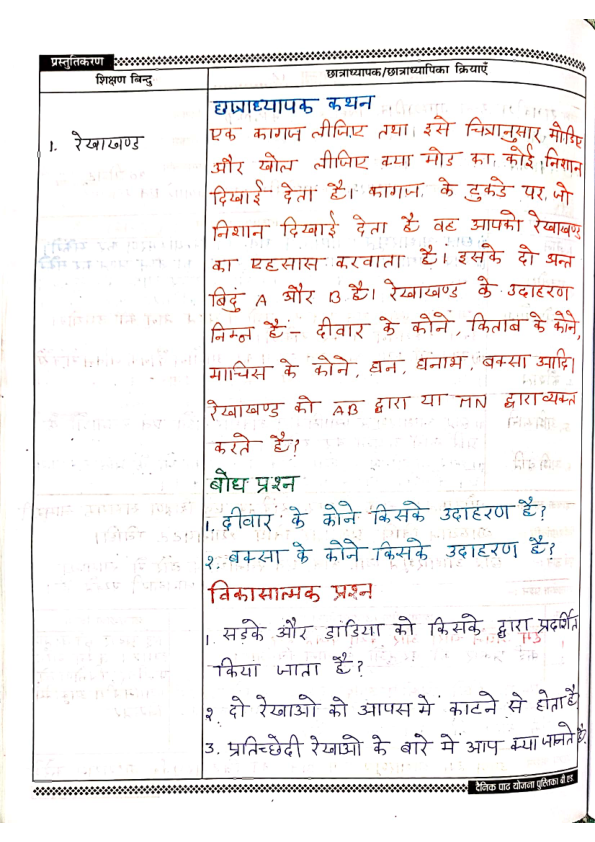 प्रस्तुतिकरण
शिक्षण बिन्दु
छात्राध्यापक/छात्राध्यापिका क्रियाएँ
छात्राध्यापक कथन
1. रेखाखण्ड
एक कागज लीजिए तथा इसे चित्रानुसार मोडिए
और खोल लीजिए क्या मोड का कोई निशान
दिखाई देता है। कागज के टुकडे पर जो
निशान दिखाई देता है वह आपको रेखाखण्ड
का एहसास करवाता है। इसके दो अन्त
बिदुं A और B है। रेखाखण्ड के उदाहरण
निम्न है - दीवार के कोने, किताब के कोने,
माचिस के कोने, घन, घनाभ, बक्सा आदि।
रेखाखण्ड को AB द्वारा या MN द्वारा व्यक्त
करते है?
बोध प्रश्न
1. दीवार के कोने किसके उदाहरण है?
२. बक्सा के कोने किसके उदाहरण है?
विकासात्मक प्रश्न
1. सडके और डांडिया को किसके द्वारा प्रदर्शित
किया जाता है?
२. दो रेखाओ को आपस में काटने से होता है
3. प्रतिच्छेदी रेखाओ के बारे में आप क्या जानते है?
दैनिक पाठ योजना पुस्तिका बी.एड.